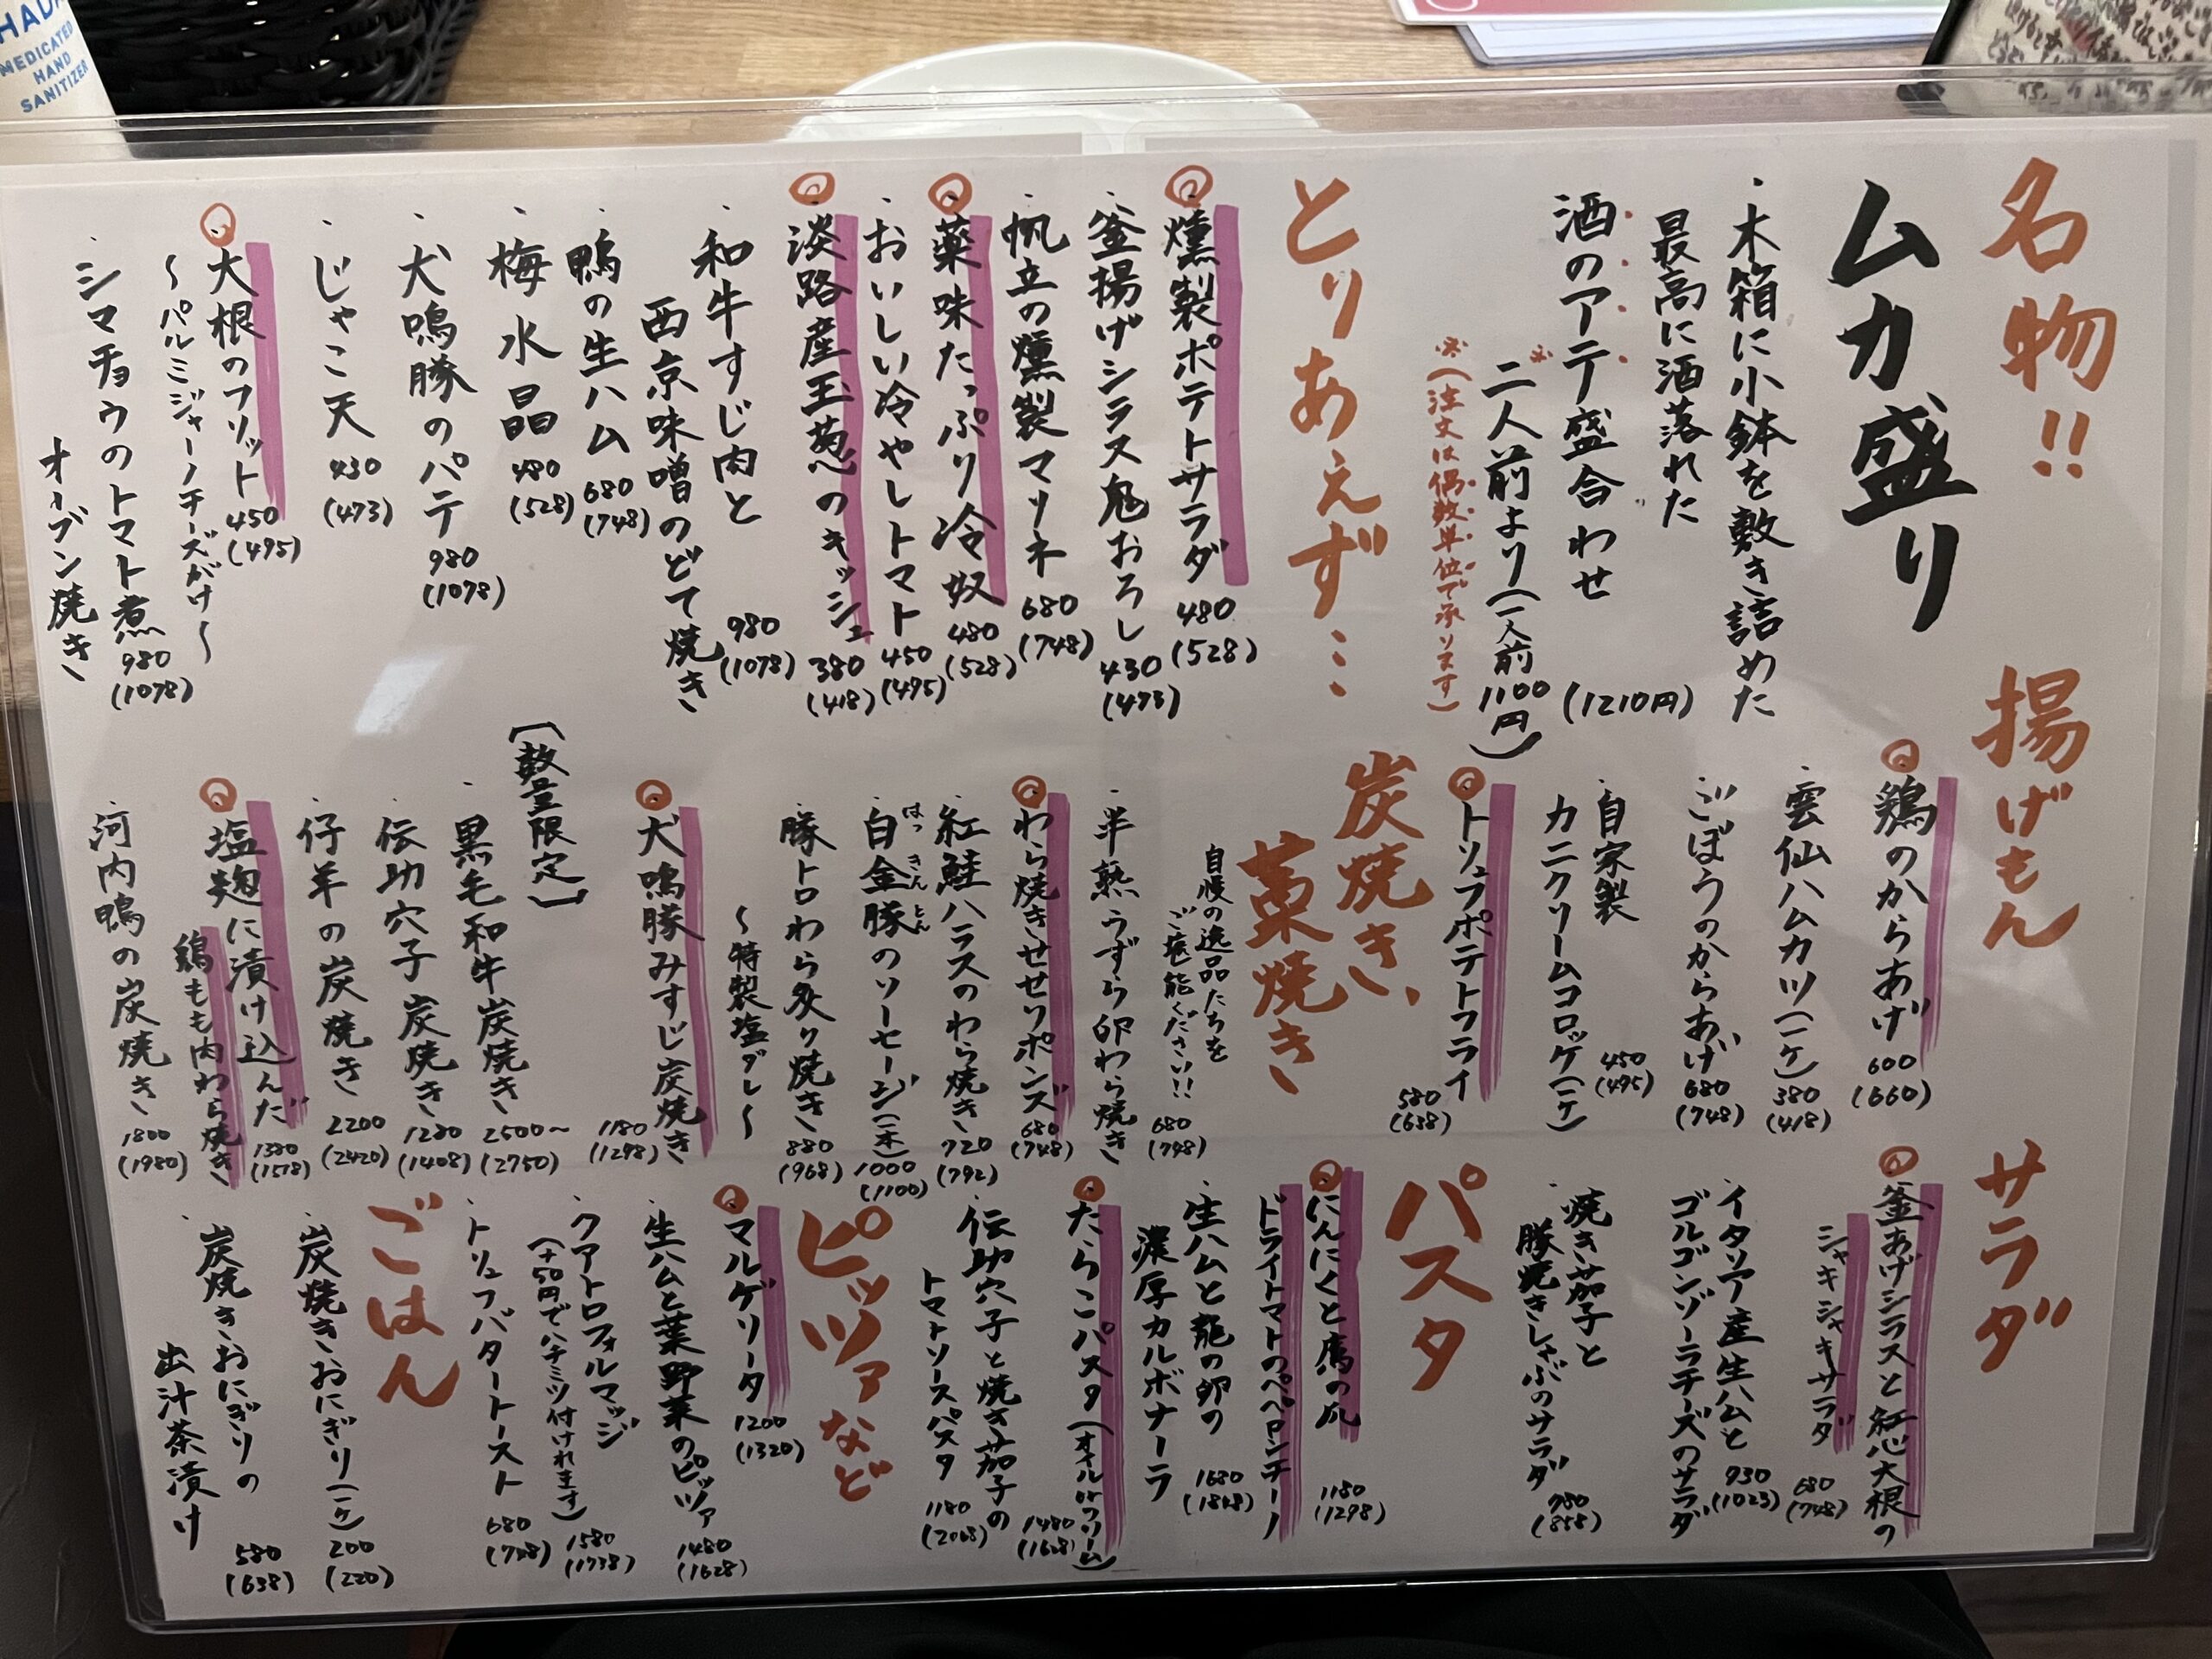 MEDICATED
HAND
SANITIZER
名物!!
ムカ盛り
・木箱に小鉢を敷き詰めた
最高に洒落れた
酒のアテ盛合わせ
(1210円)
※二人前より(一人前1100円)
※(注文は偶数単位で承ります)
とりあえず…
・燻製ポテトサラダ 480
(528)
・釜揚げシラス鬼おろし 430
(473)
・帆立の燻製マリネ 680
(748)
・薬味たっぷり冷奴 480
(528)
・おいしい冷やしトマト 450
(495)
・淡路産玉葱のキッシュ 380
(418)
・和牛すじ肉と
西京味噌のどて焼き
980
(1078)
・鴨の生ハム 680
(748)
・梅水晶 480
(528)
・犬鳴豚のパテ 980
(1078)
・じゃこ天 430
(473)
・大根のフリット 450
(495)
〜パルミジャーノチーズがけ〜
・シマチョウのトマト煮 980
(1078)
オーブン焼き
揚げもん
・鶏のからあげ 600
(660)
・雲仙ハムカツ(一ケ) 380
(418)
・ごぼうのからあげ 680
(748)
・自家製
カニクリームコロッケ(一ケ)
450
(495)
・トリュフポテトフライ
580
(638)
炭焼き、
藁焼き
自慢の逸品たちを
ご堪能ください!!
・半熟うずら卵わら焼き
680
(748)
・わら焼きせせりポンズ 680
(748)
・紅鮭ハラスのわら焼き 720
(792)
・白金豚のソーセージ(一本) 1000
はっきんとん
(1100)
・豚トロわら炙り焼き 880
(968)
〜特製塩ダレ〜
・犬鳴豚みすじ炭焼き
1180
(1298)
【数量限定】
・黒毛和牛炭焼き 2500〜
(2750)
・伝助穴子炭焼き 1280
(1408)
・仔羊の炭焼き 2200
(2420)
・塩麹に漬け込んだ
鶏もも肉わら焼き
1380
(1518)
・河内鴨の炭焼き 1800
(1980)
サラダ
・釜あげシラスと紅心大根の
シャキシャキサラダ
680
(748)
・イタリア産生ハムと
ゴルゴンゾーラチーズのサラダ
930
(1023)
・焼き茄子と
豚焼きしゃぶのサラダ
780
(858)
パスタ
・にんにくと鷹の爪
ドライトマトのペペロンチーノ
1180
(1298)
・生ハムと龍の卵の
濃厚カルボナーラ
1680
(1848)
・たらこパスタ(オイルorクリーム)
1480
(1628)
・伝助穴子と焼き茄子の
トマトソースパスタ
1180
(2068)
ピッツァなど
・マルゲリータ 1200
(1320)
・生ハムと葉野菜のピッツァ 1480
(1628)
・クアトロフォルマッジ
(+50円でハチミツ付けれます)
1580
(1738)
・トリュフバタートースト 680
(748)
ごはん
・炭焼きおにぎり(一ケ) 200
(220)
・炭焼きおにぎりの
出汁茶漬け
580
(638)